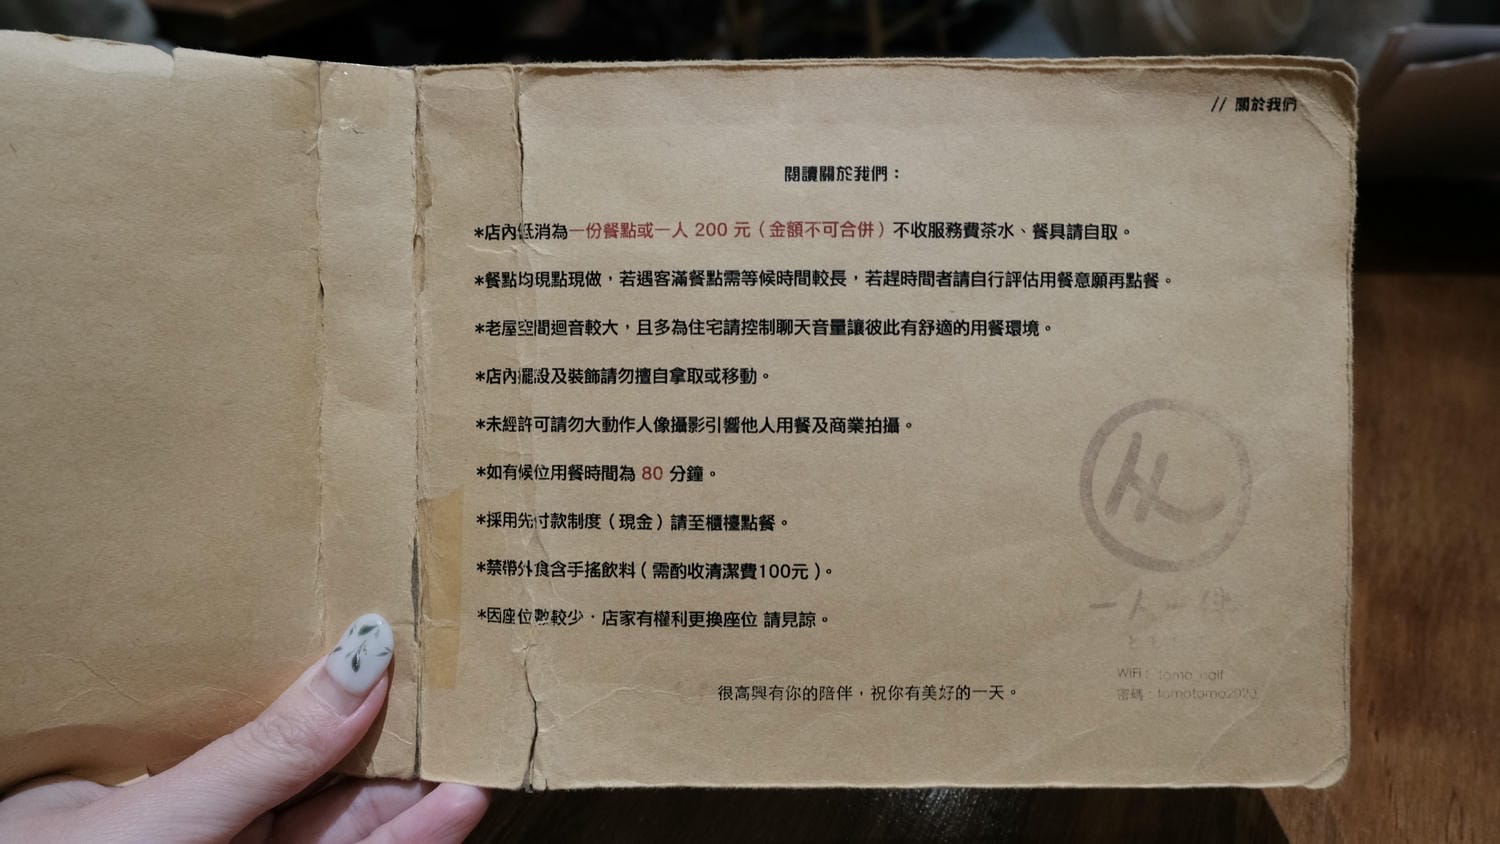 // 關於我們
閱讀關於我們：
*店內低消為一份餐點或一人 200 元（金額不可合併）不收服務費茶水、餐具請自取。
*餐點均現點現做，若遇客滿餐點需等候時間較長，若趕時間者請自行評估用餐意願再點餐。
*老屋空間迴音較大，且多為住宅請控制聊天音量讓彼此有舒適的用餐環境。
*店內擺設及裝飾請勿擅自拿取或移動。
*未經許可請勿大動作人像攝影引響他人用餐及商業拍攝。
*如有候位用餐時間為 80 分鐘。
*採用先付款制度（現金）請至櫃檯點餐。
*禁帶外食含手搖飲料（需酌收清潔費100元）。
*因座位數較少，店家有權利更換座位 請見諒。
很高興有你的陪伴，祝你有美好的一天。
从
一人一伴
WiFi：
密碼：tomotomo2020